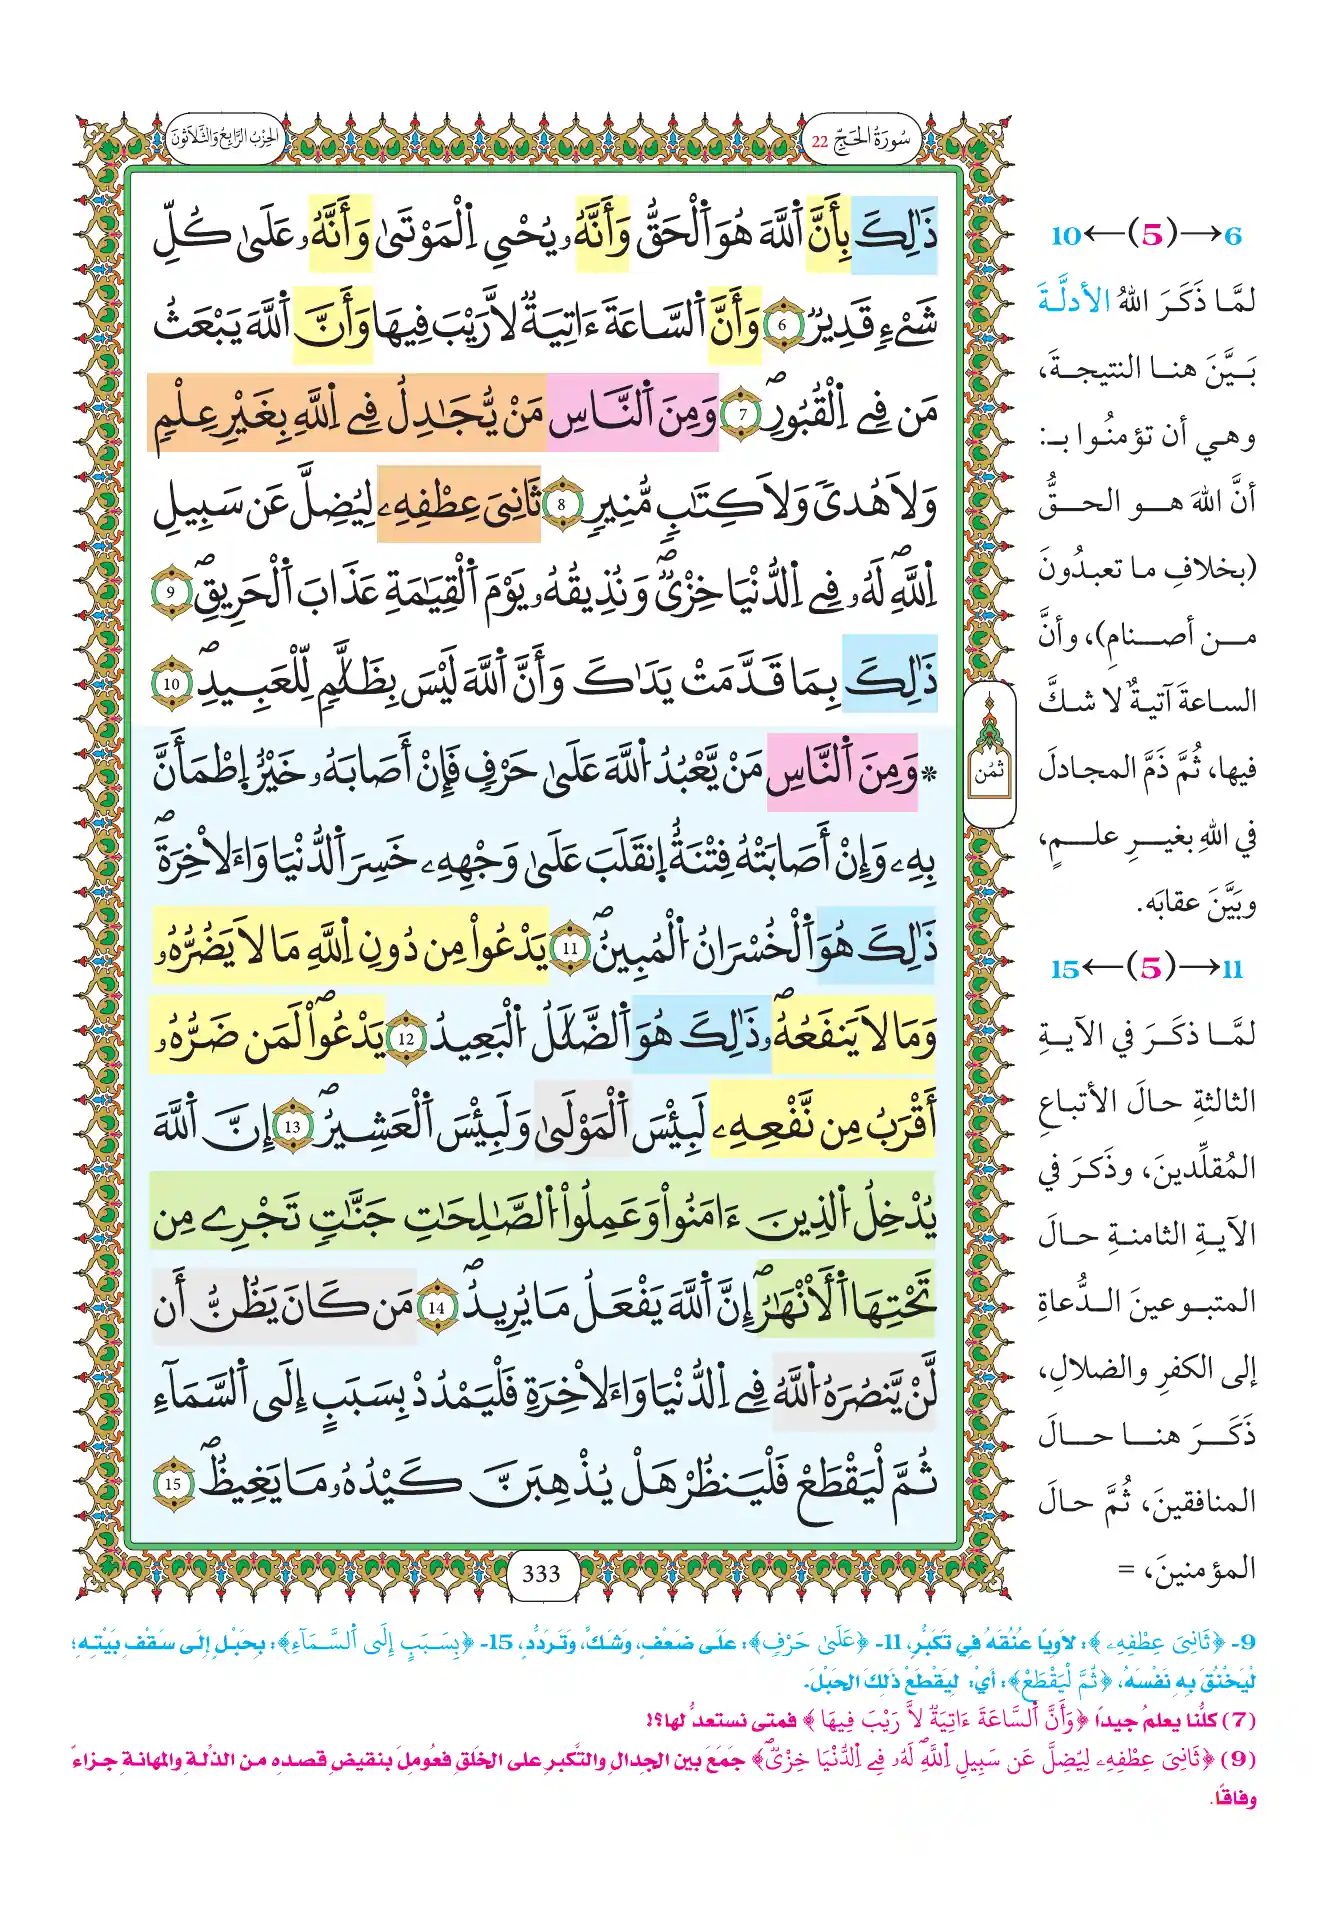 سُورَةُ الحَجِّ 22
الحِزْبُ الرَّابِعُ وَالثَّلَاثُونَ
ذَٰلِكَ بِأَنَّ اَ۬للَّهَ هُوَ اَ۬لْحَقُّ وَأَنَّهُۥ يُحْيِ اِ۬لْمَوْتَىٰ وَأَنَّهُۥ عَلَىٰ كُلِّ
شَےْءٖ قَدِيرٞ 6 وَأَنَّ اَ۬لسَّاعَةَ ءَاتِيَةٞ لَّا رَيْبَ فِيهَا وَأَنَّ اَ۬للَّهَ يَبْعَثُ
مَن فِے اِ۬لْقُبُورِۖ 7 وَمِنَ اَ۬لنَّاسِ مَنْ يُّجَٰدِلُ فِے اِ۬للَّهِ بِغَيْرِ عِلْمٖ
وَلَا هُدىٗ وَلَا كِتَٰبٖ مُّنِيرٖ 8 ثَانِيَ عِطْفِهِۦ لِيُضِلَّ عَن سَبِيلِ
اِ۬للَّهِۖ لَهُۥ فِے اِ۬لدُّنْيَا خِزْيٞۖ وَنُذِيقُهُۥ يَوْمَ اَ۬لْقِيَٰمَةِ عَذَابَ اَ۬لْحَرِيقِۖ 9
ذَٰلِكَ بِمَا قَدَّمَتْ يَدَاكَ وَأَنَّ اَ۬للَّهَ لَيْسَ بِظَلَّٰمٖ لِّلْعَبِيدِۖ 10
* وَمِنَ اَ۬لنَّاسِ مَنْ يَّعْبُدُ اُ۬للَّهَ عَلَىٰ حَرْفٖ فَإِنْ أَصَابَهُۥ خَيْرٌ اِ۪طْمَأَنَّ
بِهِۦ وَإِنْ أَصَابَتْهُ فِتْنَةٌ اِ۪نقَلَبَ عَلَىٰ وَجْهِهِۦ خَسِرَ اَ۬لدُّنْيَا وَاَلَاخِرَةَۖ
ذَٰلِكَ هُوَ اَ۬لْخُسْرَانُ اُ۬لْمُبِينُۖ 11 يَدْعُواْ مِن دُونِ اِ۬للَّهِ مَا لَا يَضُرُّهُۥ
وَمَا لَا يَنفَعُهُۥۖ ذَٰلِكَ هُوَ اَ۬لضَّلَٰلُ اُ۬لْبَعِيدُ 12 يَدْعُواْۖ لَمَن ضَرُّهُۥ
أَقْرَبُ مِن نَّفْعِهِۦ لَبِئْسَ اَ۬لْمَوْلَىٰ وَلَبِئْسَ اَ۬لْعَشِيرُۖ 13 إِنَّ اَ۬للَّهَ
يُدْخِلُ اُ۬لذِينَ ءَامَنُواْ وَعَمِلُواْ اُ۬لصَّٰلِحَٰتِ جَنَّٰتٖ تَجْرِے مِن
تَحْتِهَا اَ۬لَانْهَٰرُۖ إِنَّ اَ۬للَّهَ يَفْعَلُ مَا يُرِيدُۖ 14 مَن كَانَ يَظُنُّ أَن
لَّنْ يَّنصُرَهُ اُ۬للَّهُ فِے اِ۬لدُّنْيَا وَاَلَاخِرَةِ فَلْيَمْدُدْ بِسَبَبٍ إِلَى اَ۬لسَّمَآءِ
ثُمَّ لْيَقْطَعْ فَلْيَنظُرْ هَلْ يُذْهِبَنَّ كَيْدُهُۥ مَا يَغِيظُۖ 15
333
ثمُن
6→(5)←10
لمَّا ذَكَرَ اللهُ الأدلَّةَ
بَيَّنَ هنا النتيجةَ،
وهي أن تؤمنُوا بـ:
أنَّ اللهَ هو الحقُّ
(بخلافِ ما تعبدُونَ
من أصنامٍ)، وأنَّ
الساعةَ آتيةٌ لا شكَّ
فيها، ثُمَّ ذَمَّ المجادلَ
في اللهِ بغيرِ علمٍ،
وبَيَّنَ عقابَه.
11→(5)←15
لمَّا ذكَرَ في الآيةِ
الثالثةِ حالَ الأتباعِ
المُقلِّدينَ، وذَكرَ في
الآيةِ الثامنةِ حالَ
المتبوعينَ الدُّعاةِ
إلى الكفرِ والضلالِ،
ذَكَرَ هنا حالَ
المنافقينَ، ثُمَّ حالَ
المؤمنينَ، =
9- ﴿ثَانِيَ عِطْفِهِۦ﴾: لاَوِيًا عُنُقَهُ فِي تَكَبُّرٍ، 11- ﴿عَلَىٰ حَرْفٖ﴾: عَلَى ضَعْفٍ، وَشَكٍّ، وَتَرَدُّدٍ، 15- ﴿بِسَبَبٍ إِلَى اَ۬لسَّمَآءِ﴾: بِحَبْلٍ إِلَى سَقْفِ بَيْتِهِ؛
لْيَخْنُقَ بِهِ نَفْسَهُ، ﴿ثُمَّ لْيَقْطَعْ﴾: أَيْ: لِيَقْطَعْ ذَلِكَ الحَبْلَ.
(7) كلُّنا يعلمُ جيدًا ﴿وَأَنَّ اَ۬لسَّاعَةَ ءَاتِيَةٞ لَّا رَيْبَ فِيهَا﴾ فمتى نستعدُّ لها؟!
(9) ﴿ثَانِيَ عِطْفِهِۦ لِيُضِلَّ عَن سَبِيلِ اِ۬للَّهِۖ لَهُۥ فِے اِ۬لدُّنْيَا خِزْيٞۖ﴾ جَمَعَ بين الجدالِ والتَّكبرِ على الخَلقِ فعُوملَ بنقيضِ قصدِه من الذلةِ والمهانةِ جزاءً
وفاقًا.